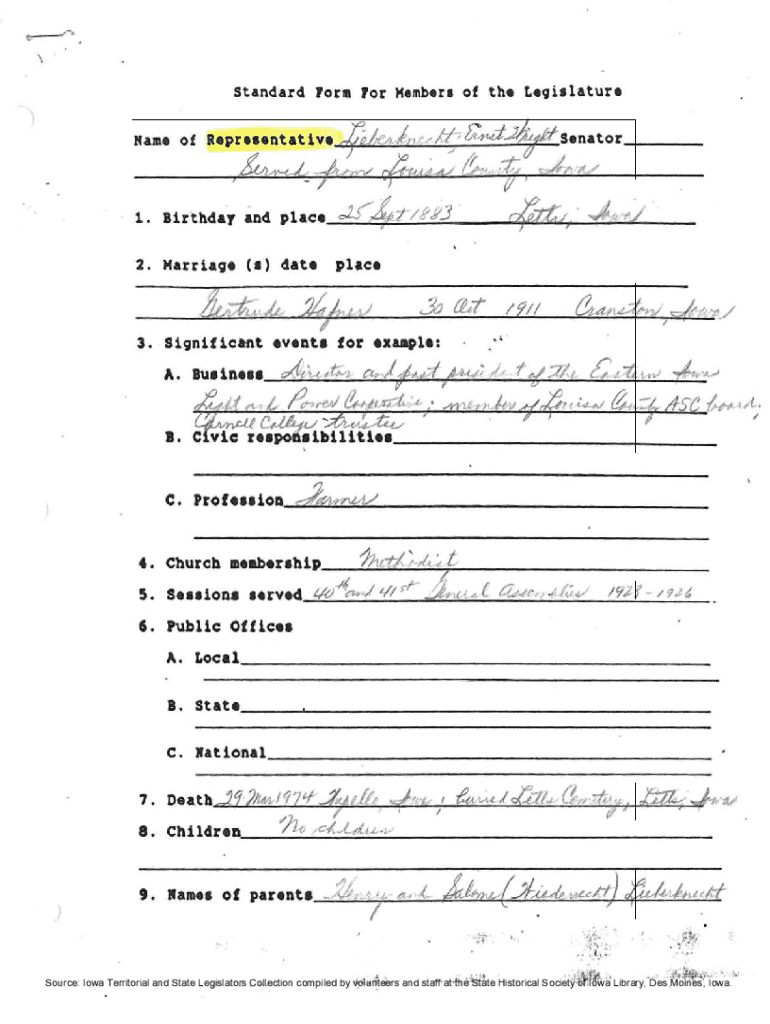 Standard Form For Members of the Legislature
Name of Representative Lieberknecht, Ernst Senator
Served from Louisa County, Iowa
1. Birthday and place 25 Sept 1883 Letts, Iowa
2. Marriage (s) date place
Gertrude Hafner 30 Oct 1911 Cranston, Iowa
3. Significant events for example:
A. Business Director and past president of the Eastern Iowa
Light and Power Cooperative; member of Louisa County ASC board;
Cornell College - trustee
B. Civic responsibilities
C. Profession Farmer
4. Church membership Methodist
5. Sessions served 40th and 41st General Assemblies 1923-1926
6. Public Offices
A. Local
B. State
C. National
7. Death 29 Mar 1974 Wapello, Iowa; buried Letts Cemetery, Letts, Iowa
8. Children No children
9. Names of parents Henry and Salome ( ) Lieberknecht
Source: Iowa Territorial and State Legislators Collection compiled by volunteers and staff at the State Historical Society of Iowa Library, Des Moines, Iowa.